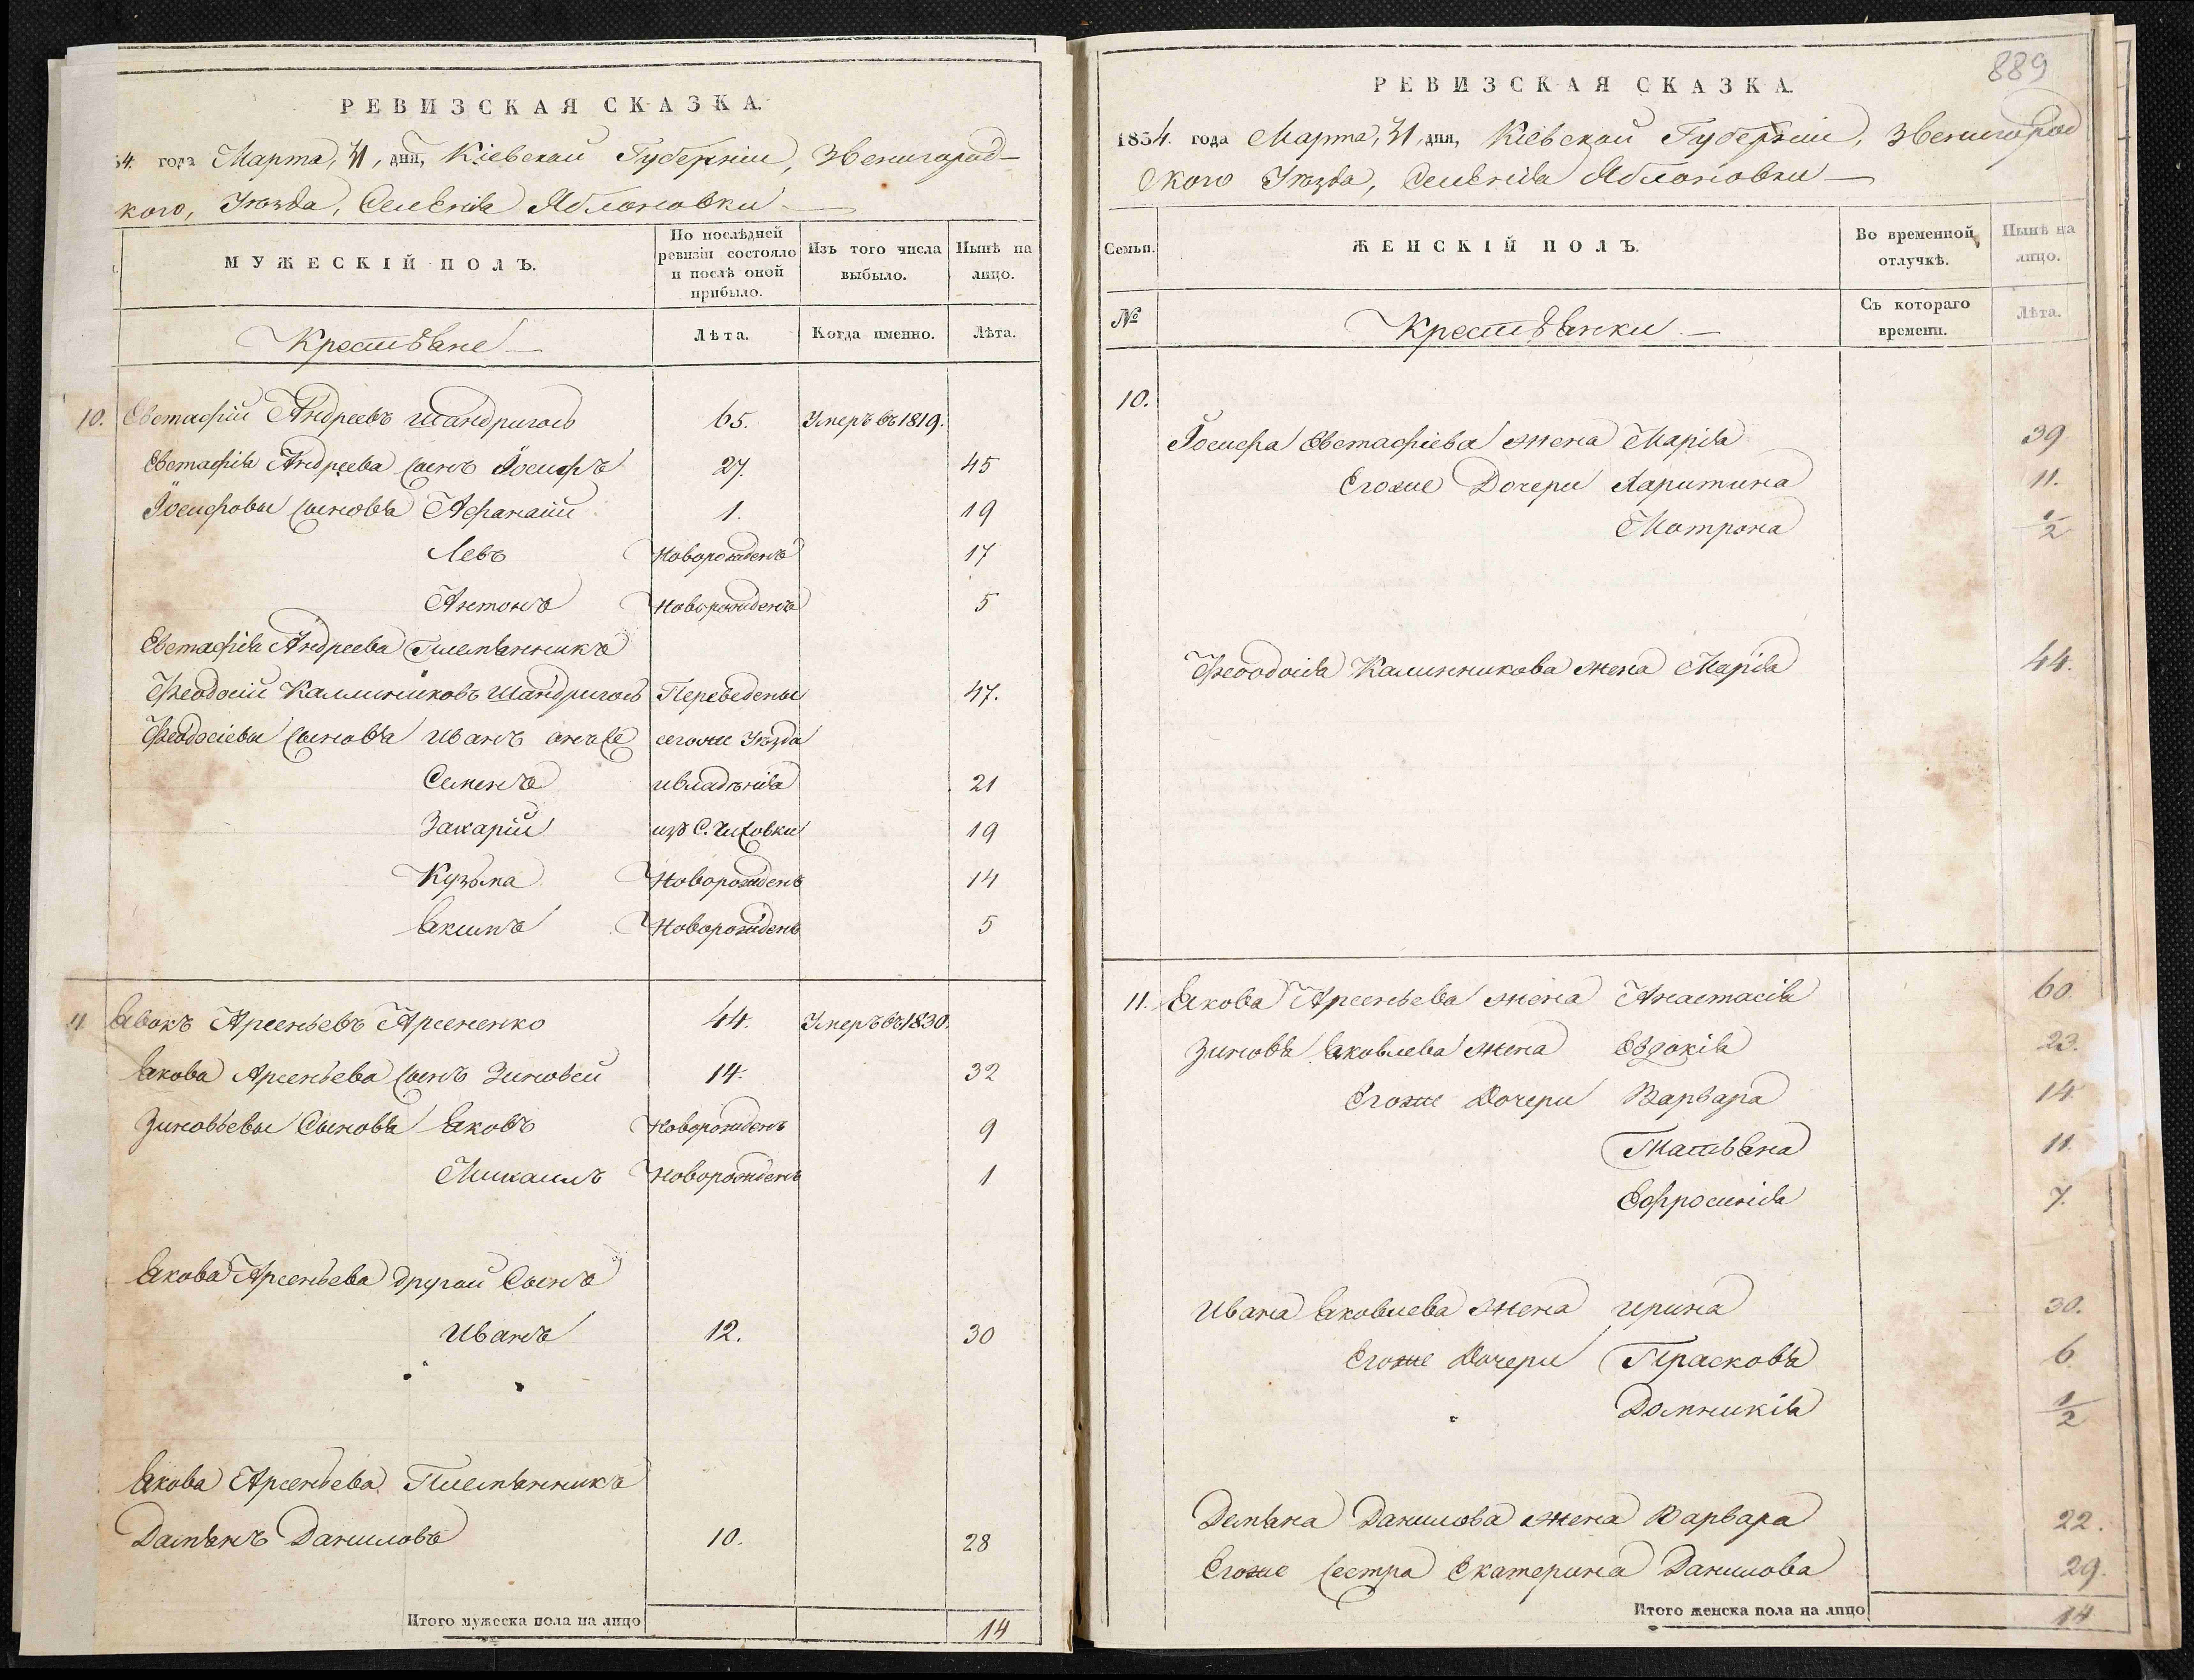 РЕВИЗСКАЯ СКАЗКА.
34. года Марта, 31, дня, Кіевской Губерніи, Звенигород-
кого, Уѣзда, Селенія Яблоновки
МУЖЕСКІЙ ПОЛЪ.
По послѣдней ревизіи состояло и послѣ оной прибыло.
Изъ того числа выбыло.
Нынѣ на лицо.
Крестьяне
Лѣта.
Когда именно.
Лѣта.
10. Евстафій Андреевъ Шандриголь 65. Умеръ въ 1819.
Евстафія Андреева сынъ Іосифъ 27. 45
Іосифовы сыновья Афанасій 1. 19
Левъ Новорожденъ 17
Антонъ Новорожденъ 5
Евстафія Андреева Племянникъ
Феодосій Калинниковъ Шандриголь Переведены 47.
Феодосіевы сыновья Иванъ сегоже Уѣзда
Семенъ ивладѣнія 21
Захарій изъ С. 19
Кузьма Новорожденъ 14
Якимъ Новорожденъ 5
11. Явокъ Арсеньевъ Арсененко 44. Умеръ въ 1830.
Якова Арсеньева сынъ Зиновей 14. 32
Зиновьевы Сыновья Яковъ Новорожденъ 9
Михаилъ Новорожденъ 1
Якова Арсеньева другой Сынъ
Иванъ 12. 30
Якова Арсеньева Племянникъ
Дамянъ Даниловъ 10. 28
Итого мужеска пола на лицо 14
889
РЕВИЗСКАЯ СКАЗКА.
1834. года Марта, 31, дня, Кіевской Губерніи, Звенигород
ского Уѣзда, Селенія Яблоновки
Семьи.
ЖЕНСКІЙ ПОЛЪ.
Во временной отлучкѣ.
Нынѣ на лицо.
№
Крестьянки
Съ котораго времени.
Лѣта.
10.
Іосифа Евстафіева жена Марія 39
Егоже Дочери Харитина 11.
Мотрона 1/2
Феодосія Калинникова жена Марія 44.
11. Якова Арсеньева жена Анастасія 60.
Зиновья Яковлева жена Евдокія 23.
Егоже Дочери Варвара 14.
Татьяна 11.
Ефросинія 7.
Ивана Яковлева жена Ирина 30.
Егоже Дочери Прасковья 6.
Домникія 1/2
Демяна Данилова жена Варвара 22.
Егоже Сестра Екатерина Данилова 29.
Итого женска пола на лицо 14